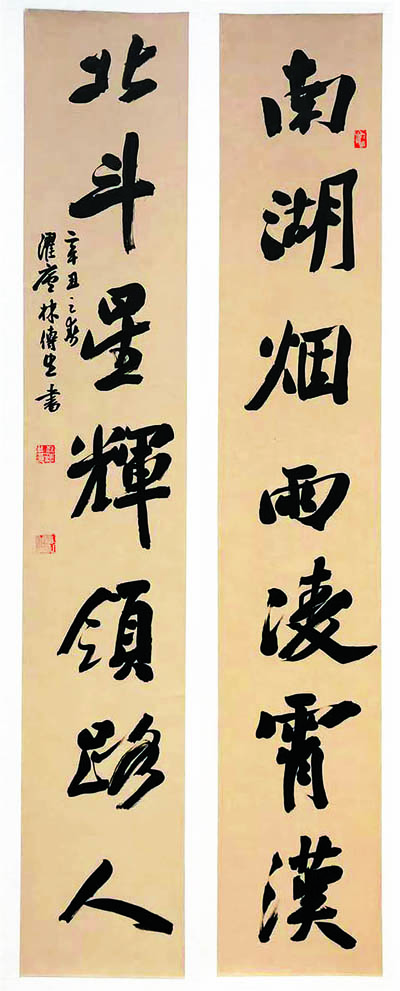 南湖烟雨凌霄漢
北斗星輝領路人
辛丑之春
濯庵林傳生書